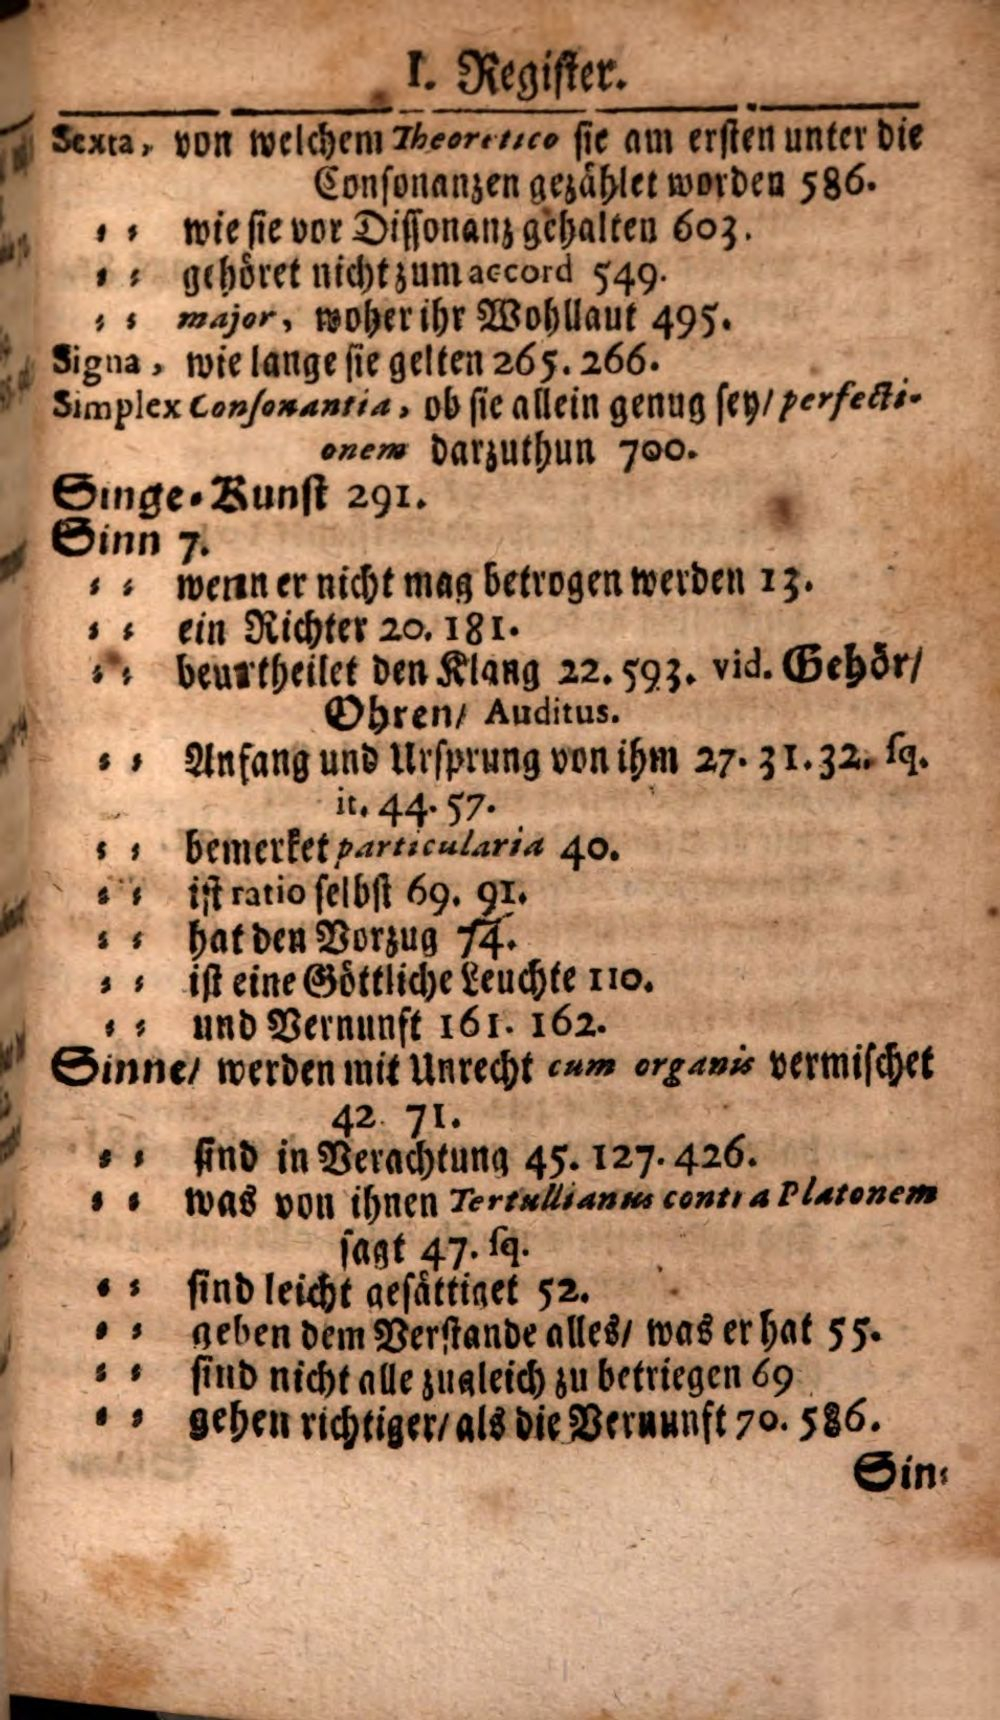 I. Register.
Sexta, von welchem Theoretico sie am ersten unter die
Consonanzen gezählet worden 586.
⸗ ⸗ wie sie vor Dissonanz gehalten 603.
⸗ ⸗ gehöret nicht zum accord 549.
⸗ ⸗ major, woher ihr Wohllaut 495.
Signa, wie lange sie gelten 265. 266.
Simplex Consonantia, ob sie allein genug sey/ perfecti-
onem darzuthun 700.
Singe-Kunst 291.
Sinn 7.
⸗ ⸗ wenn er nicht mag betrogen werden 13.
⸗ ⸗ ein Richter 20. 181.
⸗ ⸗ beurtheilet den Klang 22. 593. vid. Gehör/
Ohren/ Auditus.
⸗ ⸗ Anfang und Ursprung von ihm 27. 31. 32. sq.
it. 44. 57.
⸗ ⸗ bemerket particularia 40.
⸗ ⸗ ist ratio selbst 69. 91.
⸗ ⸗ hat den Vorzug 74.
⸗ ⸗ ist eine Göttliche Leuchte 110.
⸗ ⸗ und Vernunft 161. 162.
Sinne/ werden mit Unrecht cum organis vermischet
42. 71.
⸗ ⸗ sind in Verachtung 45. 127. 426.
⸗ ⸗ was von ihnen Tertullianus contra Platonem
sagt 47. sq.
⸗ ⸗ sind leicht gesättiget 52.
⸗ ⸗ geben dem Verstande alles/ was er hat 55.
⸗ ⸗ sind nicht alle zugleich zu betriegen 69
⸗ ⸗ gehen richtiger/ als die Vernunft 70. 586.
Sin⸗